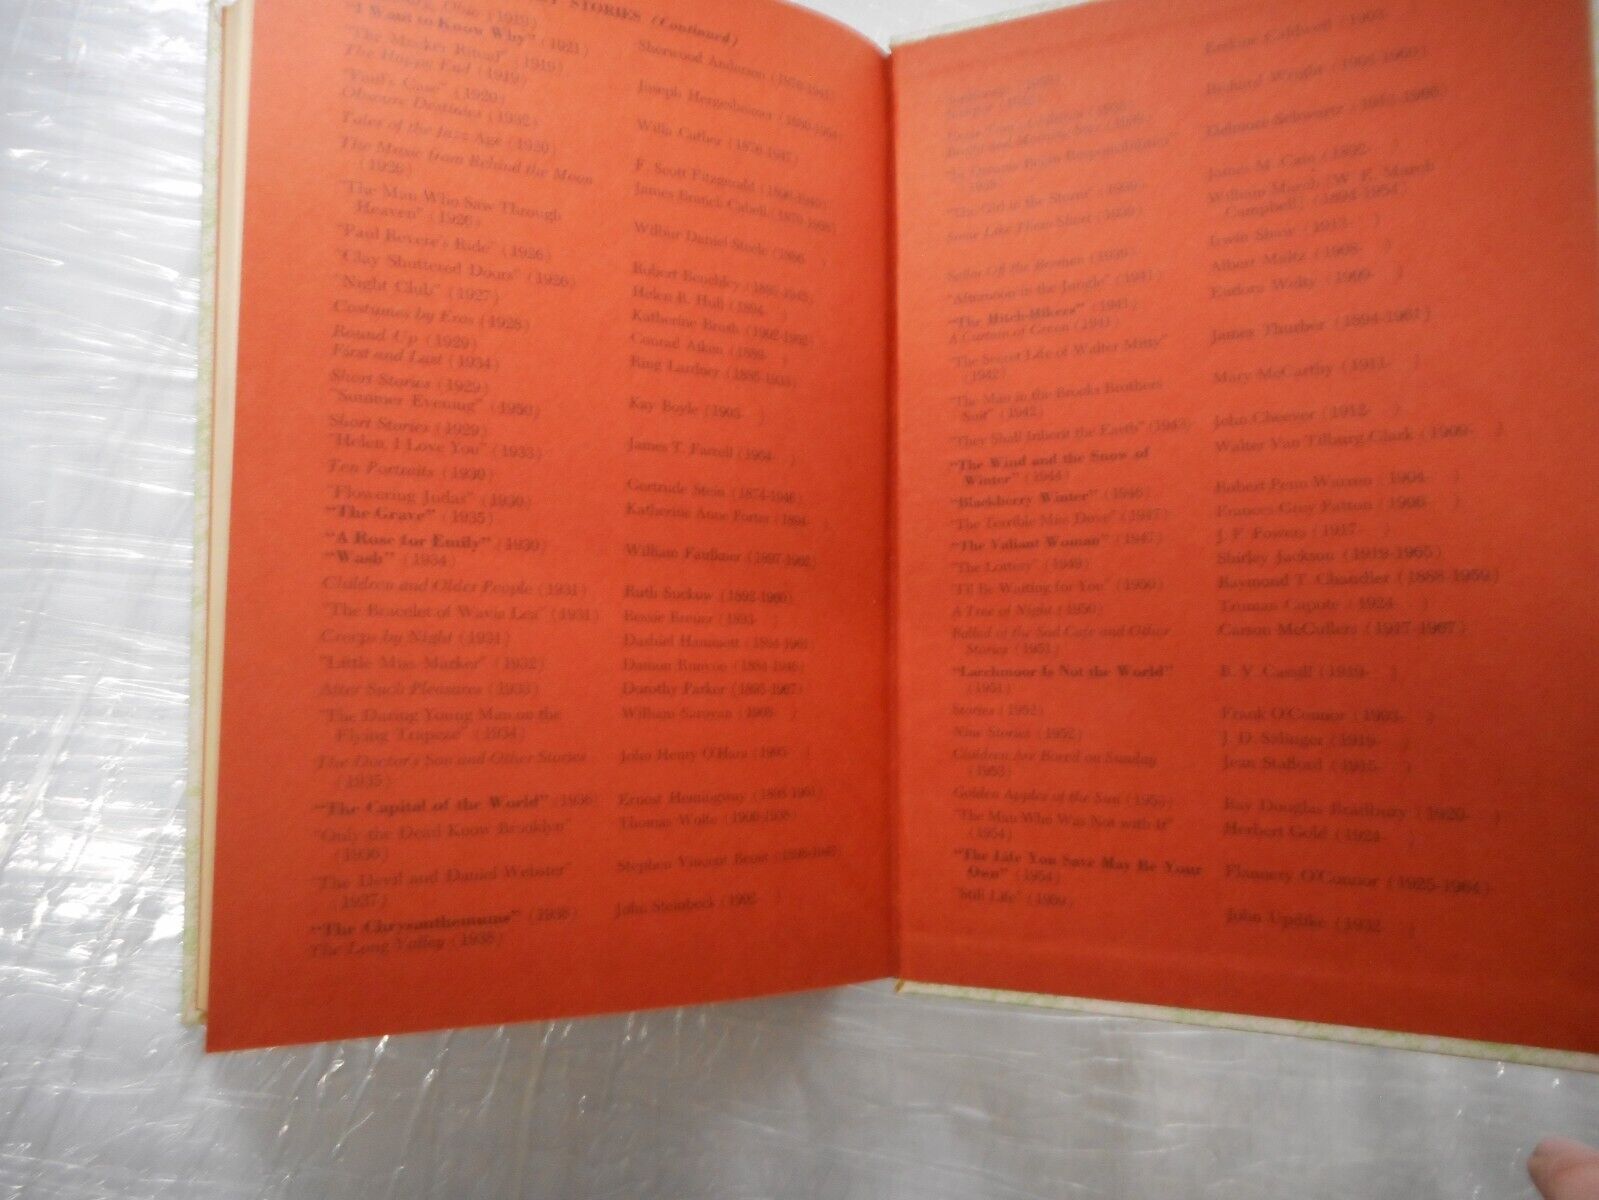 STORIES (Continued)
Ohio (1919)
"I Want to Know Why" (1921)
Sherwood Anderson (1876-1941)
(1919)
The Happy End (1919)
Joseph Hergesheimer (1880-1954)
"Paul's Case" (1920)
Obscure Destinies (1932)
Willa Cather (1876-1947)
Tales of the Jazz Age (1920)
F. Scott Fitzgerald (1896-1940)
The Music from Behind the Moon
(1926)
James Branch Cabell (1879-1958)
"The Man Who Saw Through
Heaven" (1926)
Wilbur Daniel Steele (1886- )
"Paul Revere's Ride" (1926)
Robert Benchley (1889-1945)
"Clay Shuttered Doors" (1926)
Helen R. Hull (1894- )
"Night Club" (1927)
Katherine Brush (1902-1952)
Costumes by Eros (1928)
Conrad Aiken (1889- )
Round Up (1929)
First and Last (1934)
Ring Lardner (1885-1933)
Short Stories (1929)
"Summer Evening" (1950)
Kay Boyle (1903- )
Short Stories (1929)
"Helen, I Love You" (1933)
James T. Farrell (1904- )
Ten Portraits (1930)
Gertrude Stein (1874-1946)
"Flowering Judas" (1930)
"The Grave" (1935)
Katherine Anne Porter (1894- )
"A Rose for Emily" (1930)
"Wash" (1934)
William Faulkner (1897-1962)
Children and Older People (1931)
Ruth Suckow (1892-1960)
"The Bracelet of Wavia Lea" (1931)
Bessie Breuer (1893- )
Creeps by Night (1931)
Dashiel Hammett (1894-1961)
"Little Miss Marker" (1932)
Damon Runyon (1884-1946)
After Such Pleasures (1933)
Dorothy Parker (1893-1967)
"The Daring Young Man on the
Flying Trapeze" (1934)
William Saroyan (1908- )
The Doctor's Son and Other Stories
(1935)
John Henry O'Hara (1905- )
"The Capital of the World" (1936)
Ernest Hemingway (1898-1961)
"Only the Dead Know Brooklyn"
(1936)
Thomas Wolfe (1900-1938)
"The Devil and Daniel Webster"
(1937)
Stephen Vincent Benét (1898-1943)
"The Chrysanthemums" (1938)
The Long Valley (1938)
John Steinbeck (1902- )
Erskine Caldwell (1903-
Richard Wright (1908-1960)
Bright and Morning Star
"In Dreams Begin Responsibilities"
1938
Delmore Schwartz (1913-1966)
"The Girl in the Storm" (1939)
James M. Cain (1892- )
Some Like Them Short (1939)
William March [W. E. March
Campbell] (1894-1954)
Sailor Off the Bremen (1939)
Irwin Shaw (1913- )
"Afternoon in the Jungle" (1941)
Albert Maltz (1908- )
"The Hitch-Hikers" (1941)
A Curtain of Green (1941)
Eudora Welty (1909- )
"The Secret Life of Walter Mitty"
(1942)
James Thurber (1894-1961)
"The Man in the Brooks Brothers
Suit" (1942)
Mary McCarthy (1912- )
"They Shall Inherit the Earth" (1943)
John Cheever (1912- )
"The Wind and the Snow of
Winter" (1944)
Walter Van Tilburg Clark (1909- )
"Blackberry Winter" (1946)
Robert Penn Warren (1904- )
"The Terrible Miss Dove" (1947)
Frances Gray Patton (1906- )
"The Valiant Woman" (1947)
J. F. Powers (1917- )
"The Lottery" (1949)
Shirley Jackson (1919-1965)
"I'll Be Waiting for You" (1950)
Raymond T. Chandler (1888-1959)
A Tree of Night (1950)
Truman Capote (1924- )
Ballad of the Sad Cafe and Other
Stories (1951)
Carson McCullers (1917-1967)
"Larchmoor Is Not the World"
(1951)
R. V. Cassill (1919- )
Stories (1952)
Frank O'Connor (1903- )
Nine Stories (1952)
J. D. Salinger (1919- )
Children Are Bored on Sunday
(1953)
Jean Stafford (1915- )
Golden Apples of the Sun (1953)
Ray Douglas Bradbury (1920- )
"The Man Who Was Not with It"
(1954)
Herbert Gold (1924- )
"The Life You Save May Be Your
Own" (1954)
Flannery O'Connor (1925-1964)
"Still Life" (1959)
John Updike (1932- )